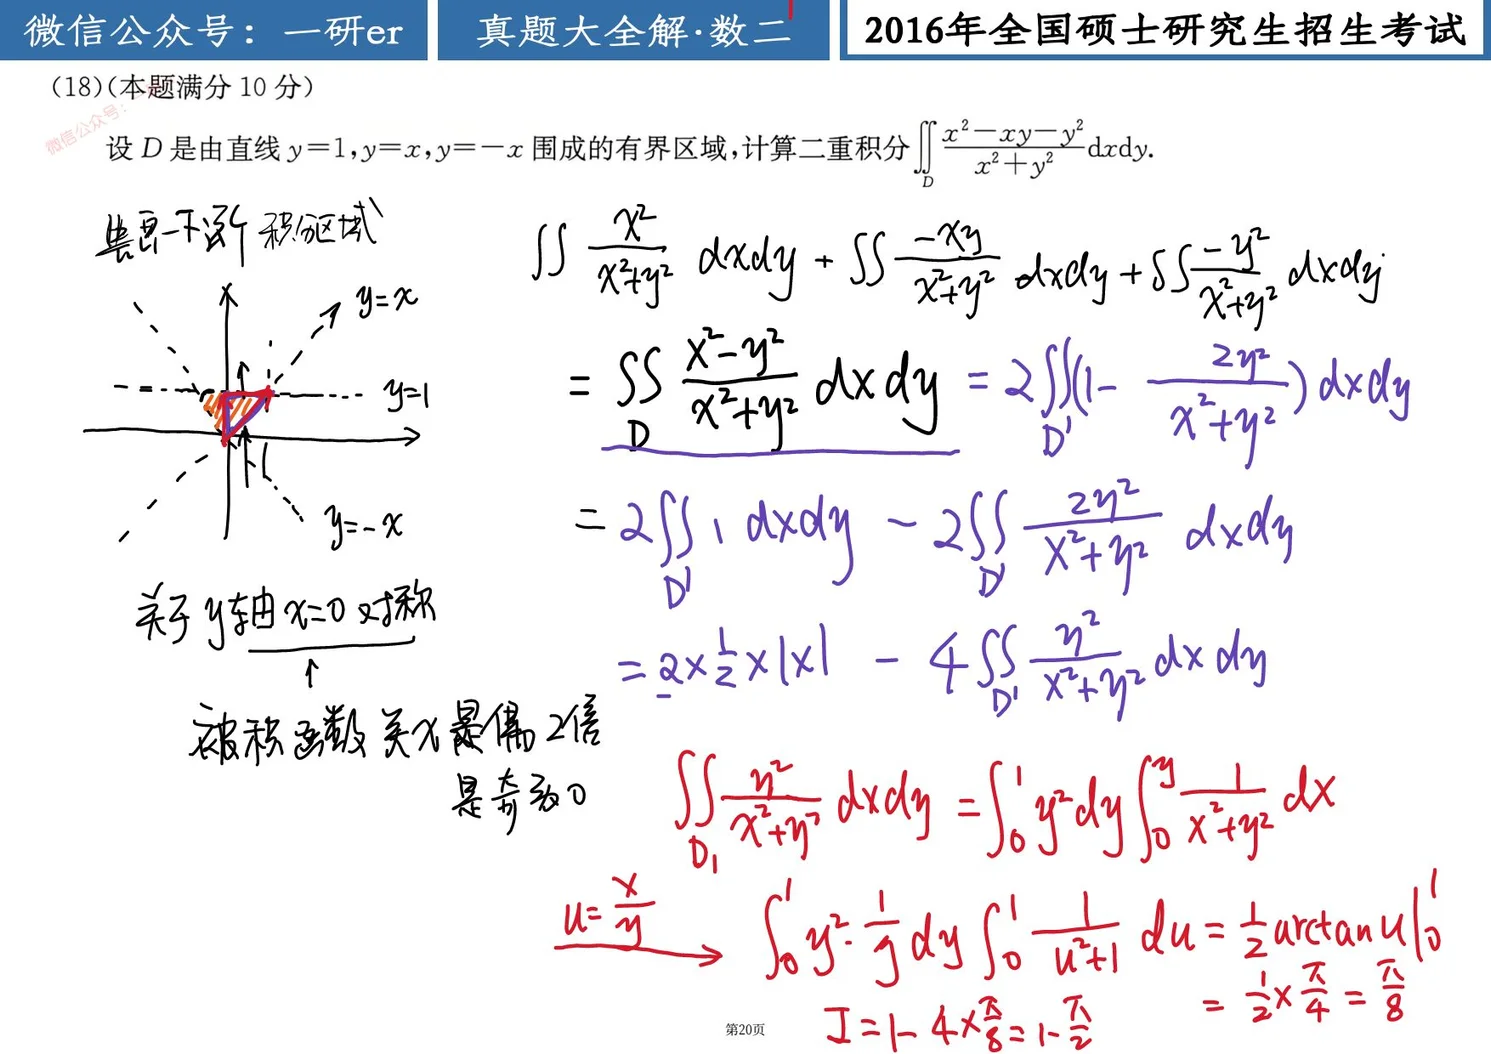 微信公众号：一研er
真题大全解·数二
2016年全国硕士研究生招生考试
(18)(本题满分 10 分)
微信公众号：
设 D 是由直线 y=1,y=x,y=-x 围成的有界区域,计算二重积分∬_D (x²-xy-y²)/(x²+y²) dxdy.
积分区域
y=x
y=1
y=-x
1
关于 y轴 x=0 对称
↑
被积函数关x是偶 2倍
是奇 为0
∬ x²/(x²+y²) dxdy + ∬ -xy/(x²+y²) dxdy + ∬ -y²/(x²+y²) dxdy
= ∬_D (x²-y²)/(x²+y²) dxdy = 2∬_D' (1- 2y²/(x²+y²)) dxdy
= 2∬_D' 1 dxdy - 2∬_D' 2y²/(x²+y²) dxdy
= 2×1/2×1×1 - 4∬_D' y²/(x²+y²) dxdy
∬_D₁ y²/(x²+y²) dxdy = ∫₀¹ y²dy ∫₀^y 1/(x²+y²) dx
u=x/y → ∫₀¹ y²·1/y dy ∫₀¹ 1/(u²+1) du = 1/2 arctan u|₀¹
= 1/2×π/4 = π/8
I=1-4×π/8=1-π/2
第20页